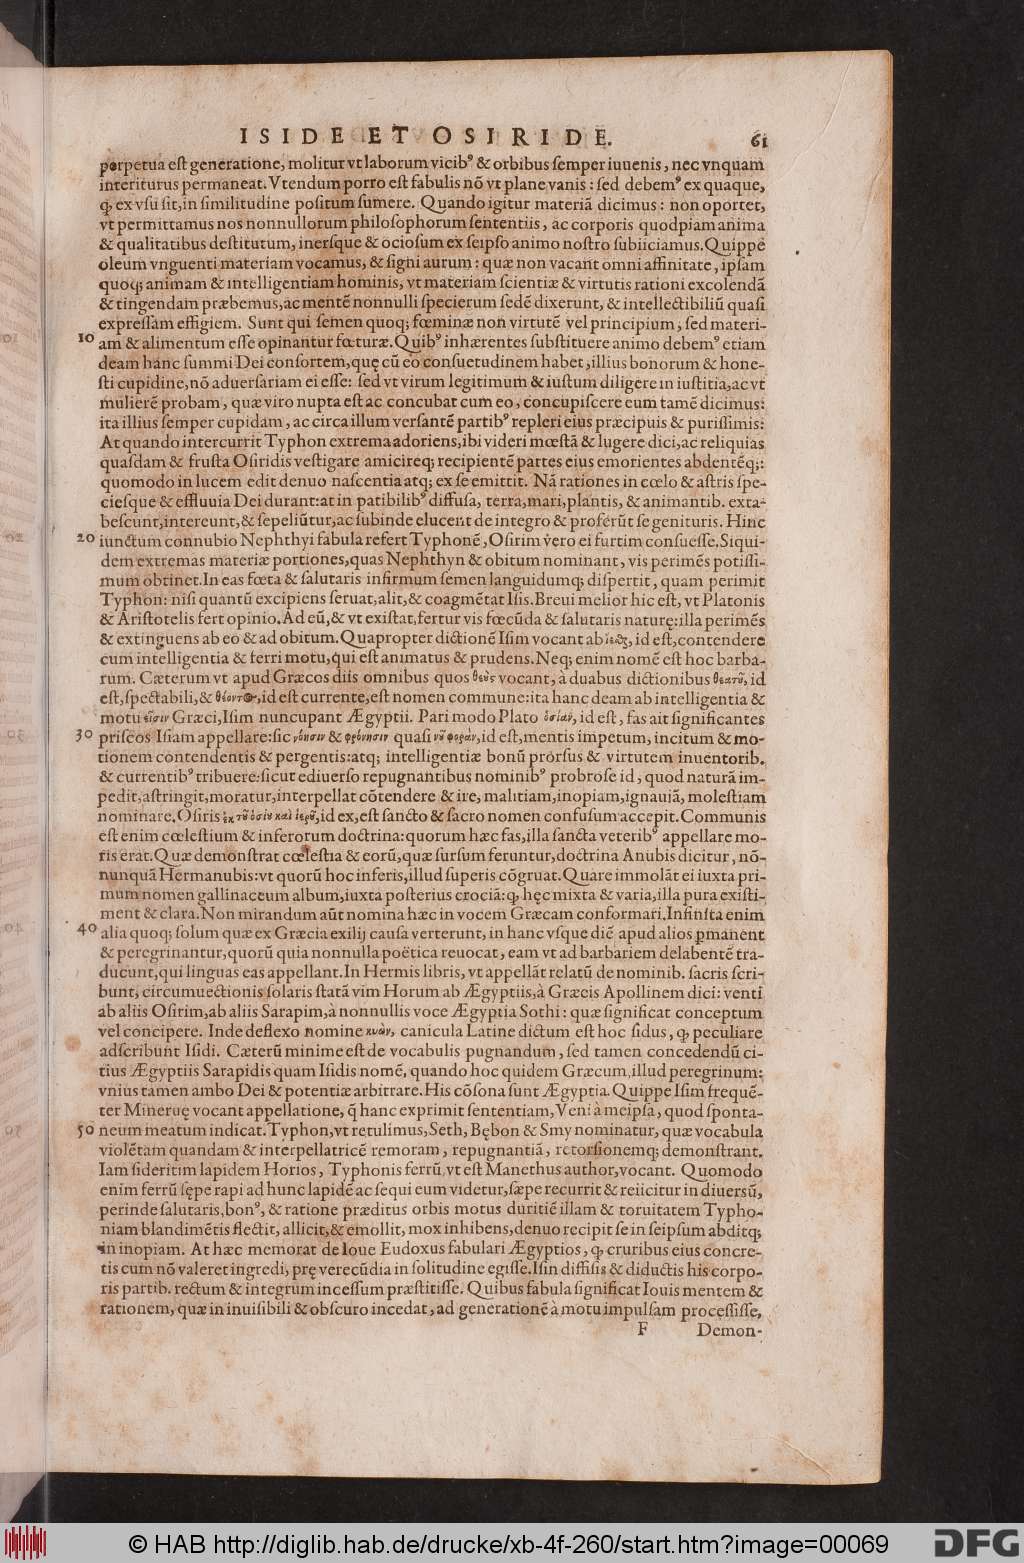 ISIDE ET OSIRIDE. 61
perpetua est generatione, molitur vt laborum vicibꝰ & orbibus semper iuuenis, nec vnquam
interiturus permaneat. Vtendum porro est fabulis nõ vt plane vanis: sed debemꝰ ex quaque,
ꝙ ex vsu sit, in similitudine positum sumere. Quando igitur materiã dicimus: non oportet,
vt permittamus nos nonnullorum philosophorum sententiis, ac corporis quodpiam anima
& qualitatibus destitutum, inersque & ociosum ex seipso animo nostro subiiciamus. Quippe
oleum vnguenti materiam vocamus, & signi aurum: quæ non vacant omni affinitate, ipsam
quoq; animam & intelligentiam hominis, vt materiam scientiæ & virtutis rationi excolendã
& tingendam præbemus, ac mentẽ nonnulli specierum sedẽ dixerunt, & intellectibiliũ quasi
expressam effigiem. Sunt qui semen quoq; fœminæ non virtutẽ vel principium, sed materi-
10 am & alimentum esse opinantur fœturæ. Quibꝰ inhærentes substituere animo debemꝰ etiam
deam hanc summi Dei consortem, quę cũ eo consuetudinem habet, illius bonorum & hone-
sti cupidine, nõ aduersariam ei esse: sed vt virum legitimum & iustum diligere in iustitia, ac vt
mulierẽ probam, quæ viro nupta est ac concubat cum eo, concupiscere eum tamẽ dicimus:
ita illius semper cupidam, ac circa illum versantẽ partibꝰ repleri eius præcipuis & purissimis:
At quando intercurrit Typhon extrema adoriens, ibi videri mœstã & lugere dici, ac reliquias
quasdam & frusta Osiridis vestigare amicireq; recipientẽ partes eius emorientes abdentẽq;:
quomodo in lucem edit denuo nascentia atq; ex se emittit. Nã rationes in cœlo & astris spe-
ciesque & effluuia Dei durant: at in patibilibꝰ diffusa, terra, mari, plantis, & animantib. exta-
bescunt, intereunt, & sepeliũtur, ac subinde elucent de integro & proferũt se genituris. Hinc
20 iunctum connubio Nephthyi fabula refert Typhonẽ, Osirim vero ei furtim consuesse. Siqui-
dem extremas materiæ portiones, quas Nephthyn & obitum nominant, vis perimẽs potissi-
mum obtinet. In eas fœta & salutaris infirmum semen languidumq; dispertit, quam perimit
Typhon: nisi quantũ excipiens seruat, alit, & coagmẽtat Isis. Breui melior hic est, vt Platonis
& Aristotelis fert opinio. Ad eũ, & vt existat, fertur vis fœcũda & salutaris naturę: illa perimẽs
& extinguens ab eo & ad obitum. Quapropter dictionẽ Isim vocant ab ἵεσθαι, id est, contendere
cum intelligentia & ferri motu, qui est animatus & prudens. Neq; enim nomẽ est hoc barba-
rum. Cæterum vt apud Græcos diis omnibus quos θεοὺς vocant, à duabus dictionibus θεατοῦ, id
est, spectabili, & θέοντος, id est currente, est nomen commune: ita hanc deam ab intelligentia &
motu εἶσιν Græci, Isim nuncupant Ægyptii. Pari modo Plato ὁσίαν, id est, fas ait significantes
30 priscos Isiam appellare: sic νόησιν & φρόνησιν quasi νοῦ φορὰν, id est, mentis impetum, incitum & mo-
tionem contendentis & pergentis: atq; intelligentiæ bonũ prorsus & virtutem inuentorib.
& currentibꝰ tribuere: sicut ediuerso repugnantibus nominibꝰ probrose id, quod naturã im-
pedit, astringit, moratur, interpellat cõtendere & ire, malitiam, inopiam, ignauiã, molestiam
nominare. Osiris ἐκ τοῦ ὁσίου καὶ ἱεροῦ, id ex, est sancto & sacro nomen confusum accepit. Communis
est enim cœlestium & inferorum doctrina: quorum hæc fas, illa sancta veteribꝰ appellare mo-
ris erat. Quæ demonstrat cœlestia & eorũ, quæ sursum feruntur, doctrina Anubis dicitur, nõ-
nunquã Hermanubis: vt quorũ hoc inferis, illud superis cõgruat. Quare immolãt ei iuxta pri-
mum nomen gallinaceum album, iuxta posterius crociã: ꝙ hęc mixta & varia, illa pura existi-
ment & clara. Non mirandum aũt nomina hæc in vocem Græcam conformari. Infinita enim
40 alia quoq; solum quæ ex Græcia exilij causa verterunt, in hanc vsque diẽ apud alios ꝑmanent
& peregrinantur, quorũ quia nonnulla poëtica reuocat, eam vt ad barbariem delabentẽ tra-
ducunt, qui linguas eas appellant. In Hermis libris, vt appellãt relatũ de nominib. sacris scri-
bunt, circumuectionis solaris statã vim Horum ab Ægyptiis, à Græcis Apollinem dici: venti
ab aliis Osirim, ab aliis Sarapim, à nonnullis voce Ægyptia Sothi: quæ significat conceptum
vel concipere. Inde deflexo nomine κυὼν, canicula Latine dictum est hoc sidus, ꝙ peculiare
adscribunt Isidi. Cæterũ minime est de vocabulis pugnandum, sed tamen concedendũ ci-
tius Ægyptiis Sarapidis quam Isidis nomẽ, quando hoc quidem Græcum, illud peregrinum:
vnius tamen ambo Dei & potentiæ arbitrate. His cõsona sunt Ægyptia. Quippe Isim frequẽ-
ter Mineruę vocant appellatione, q̃ hanc exprimit sententiam, Veni à meipsa, quod sponta-
50 neum meatum indicat. Typhon, vt retulimus, Seth, Bębon & Smy nominatur, quæ vocabula
violẽtam quandam & interpellatricẽ remoram, repugnantiã, retorsionemq; demonstrant.
Iam sideritim lapidem Horios, Typhonis ferrũ, vt est Manethus author, vocant. Quomodo
enim ferrũ sępe rapi ad hunc lapidẽ ac sequi eum videtur, sæpe recurrit & reiicitur in diuersũ,
perinde salutaris, bonꝰ, & ratione præditus orbis motus duritiẽ illam & toruitatem Typho-
niam blandimẽtis flectit, allicit, & emollit, mox inhibens, denuo recipit se in seipsum abditq;
in inopiam. At hæc memorat de Ioue Eudoxus fabulari Ægyptios, ꝙ cruribus eius concre-
tis cum nõ valeret ingredi, prę verecũdia in solitudine egisse. Isin diffisis & diductis his corpo-
ris partib. rectum & integrum incessum præstitisse. Quibus fabula significat Iouis mentem &
rationem, quæ in inuisibili & obscuro incedat, ad generationẽ à motu impulsam processisse,
F Demon-
© HAB http://diglib.hab.de/drucke/xb-4f-260/start.htm?image=00069 DFG